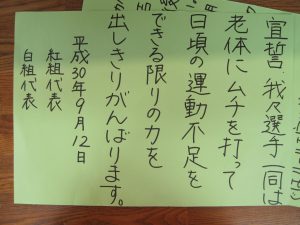 宣誓、我々選手一同は
老体にムチを打って
日頃の運動不足を
できる限りの力を
出しきりがんばります。
平成30年9月12日
紅組代表
白組代表